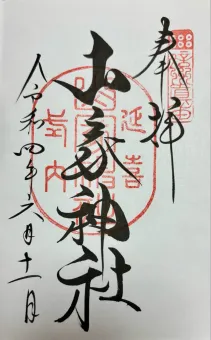 奉拝
延喜式内
山家神社
令和四年六月十一日